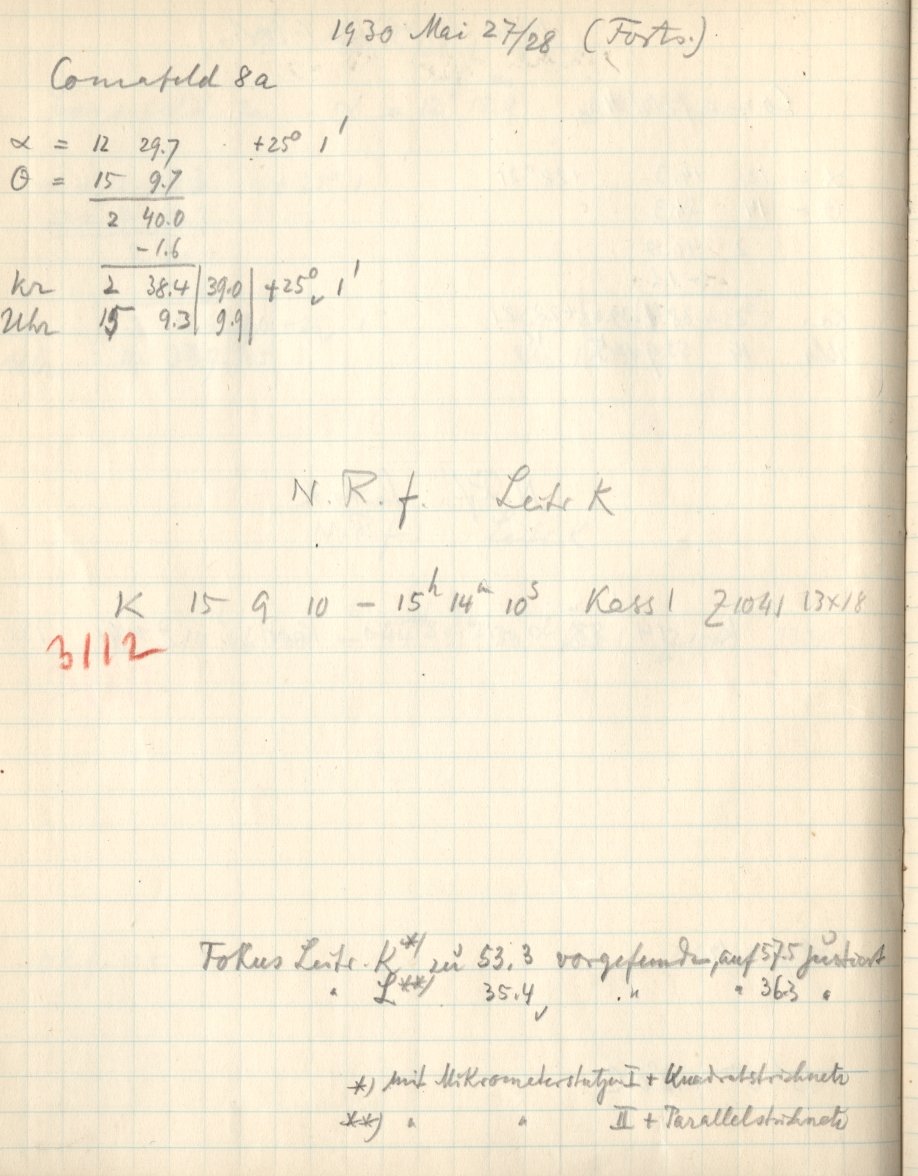 1930 Mai 27/28 (Forts.)
Comafeld 8a
α = 12 29.7 +25° 1'
θ = 15 9.7
2 40.0
-1.6
Kr 2 38.4 | 39.0 | +25° 1'
Uhr 15 9.3 | 9.9 |
N. R. f. Leitr K
K 15 9 10 - 15h 14m 10s Kass 1 Z1041 13x18
3112
Fokus Leitr. K*) zu 53.3 vorgefunden, auf 57.5 justiert
" L**) 35.4 " " 36.3 "
*) mit Mikrometerstutzen I + Quadratstrichnetz
**) " " II + Parallelstrichnetz